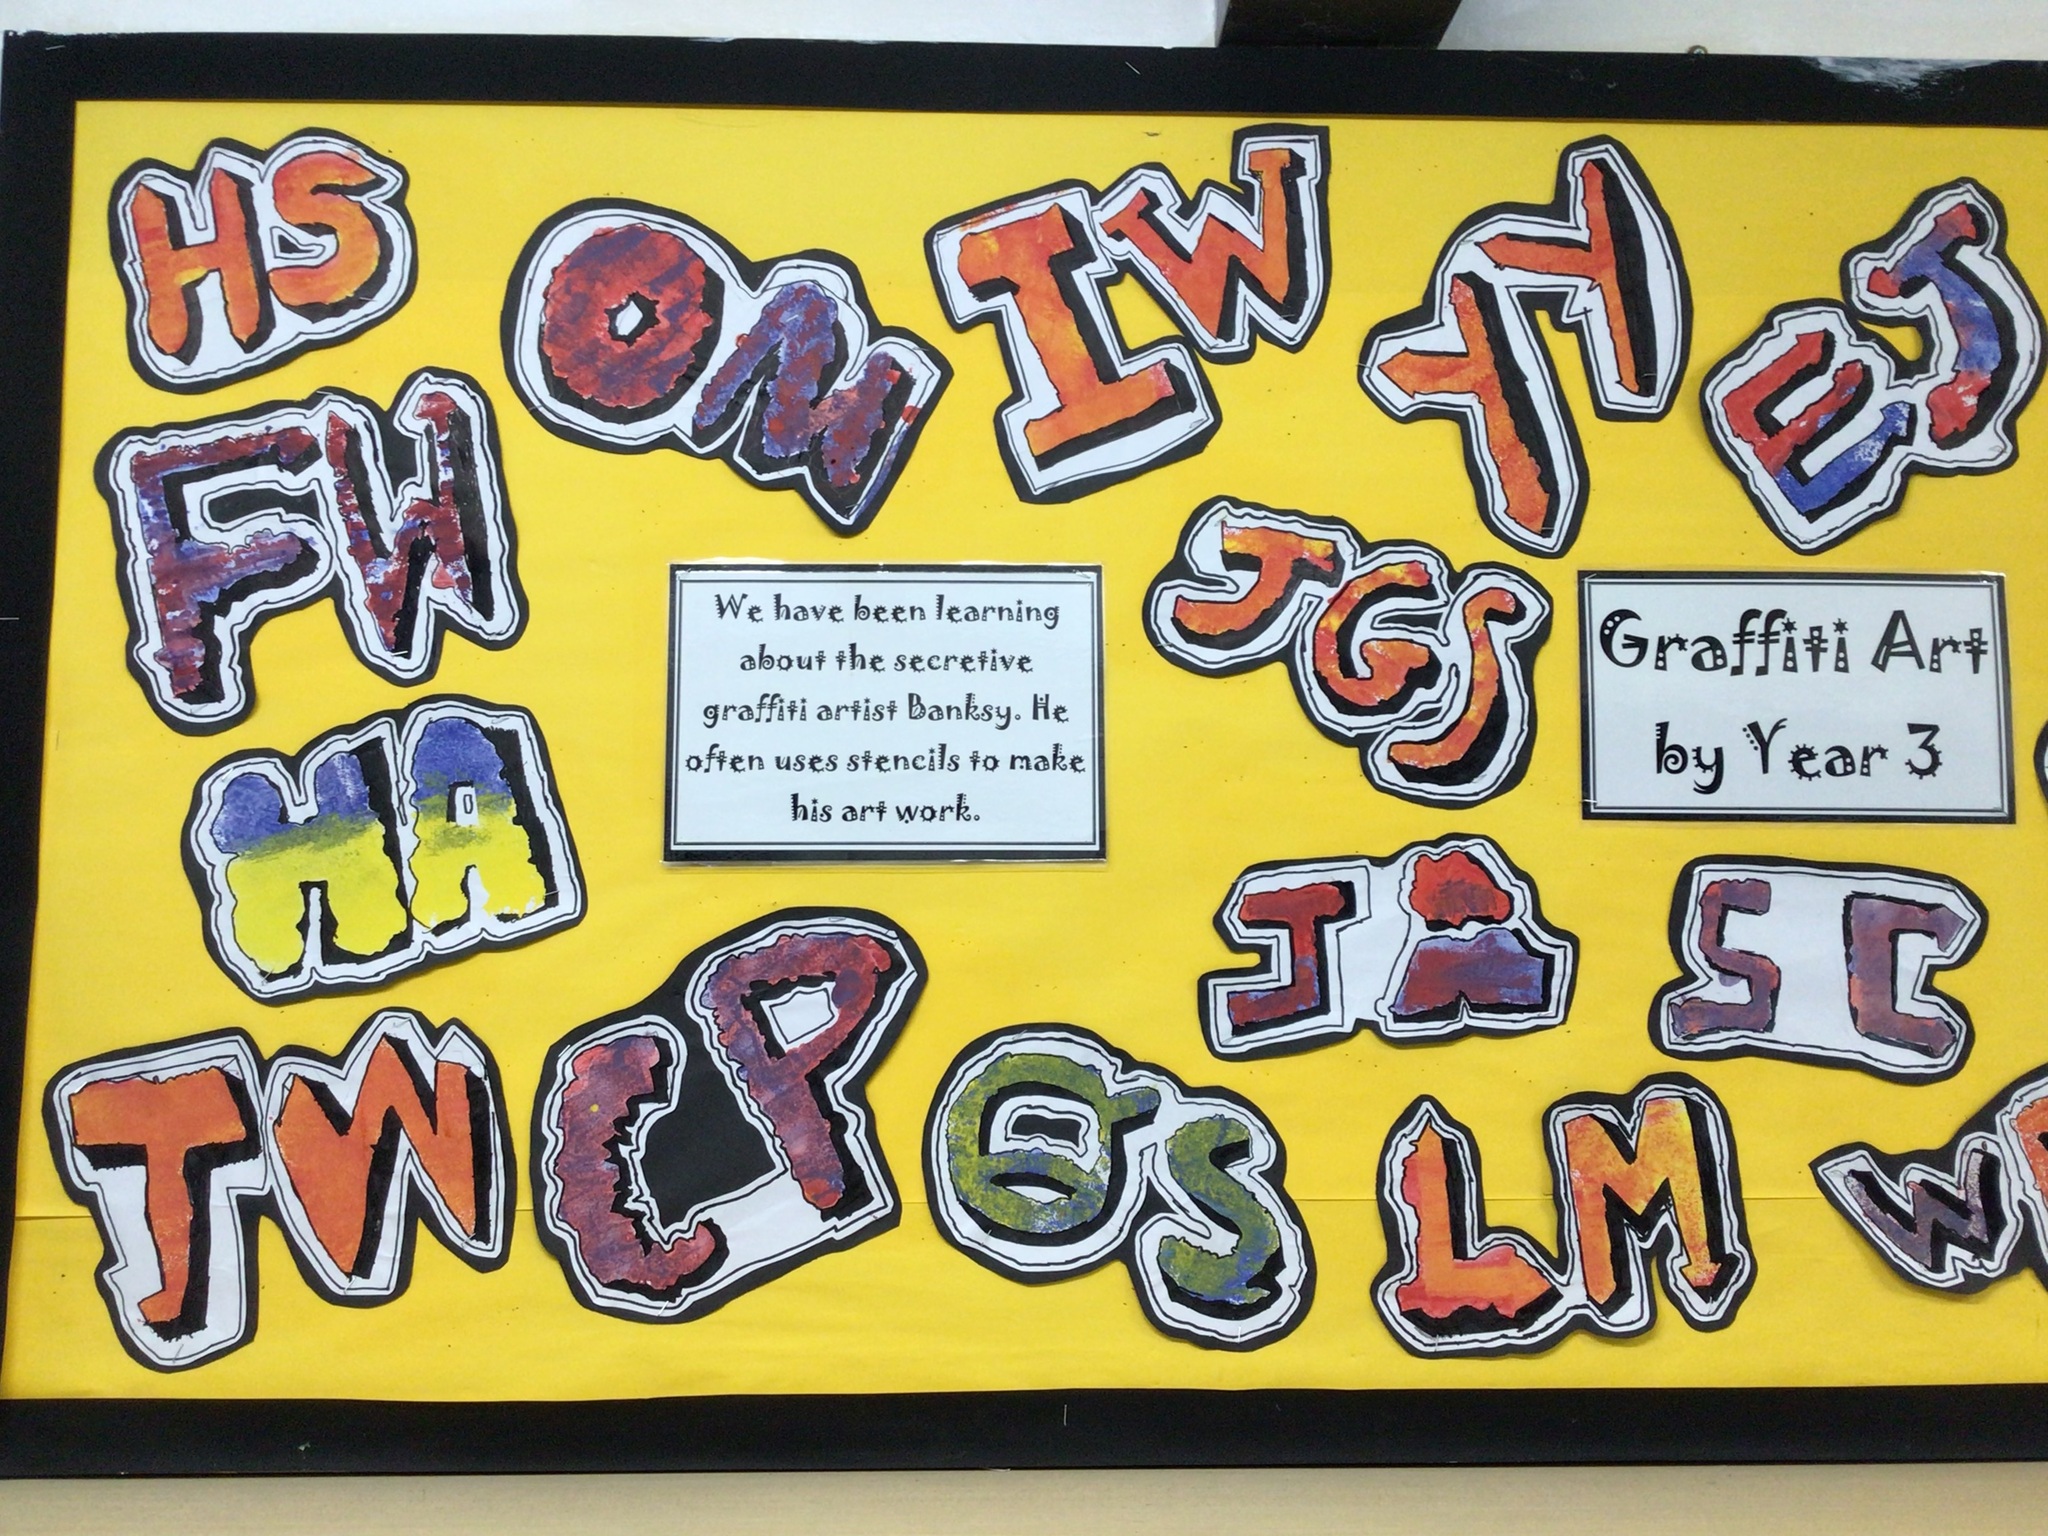 HS
OM
IW
YY
EJ
FW
JGS
We have been learning
about the secretive
graffiti artist Banksy. He
often uses stencils to make
his art work.
Graffiti Art
by Year 3
MA
JA
SC
TW
LP
S
LM
W